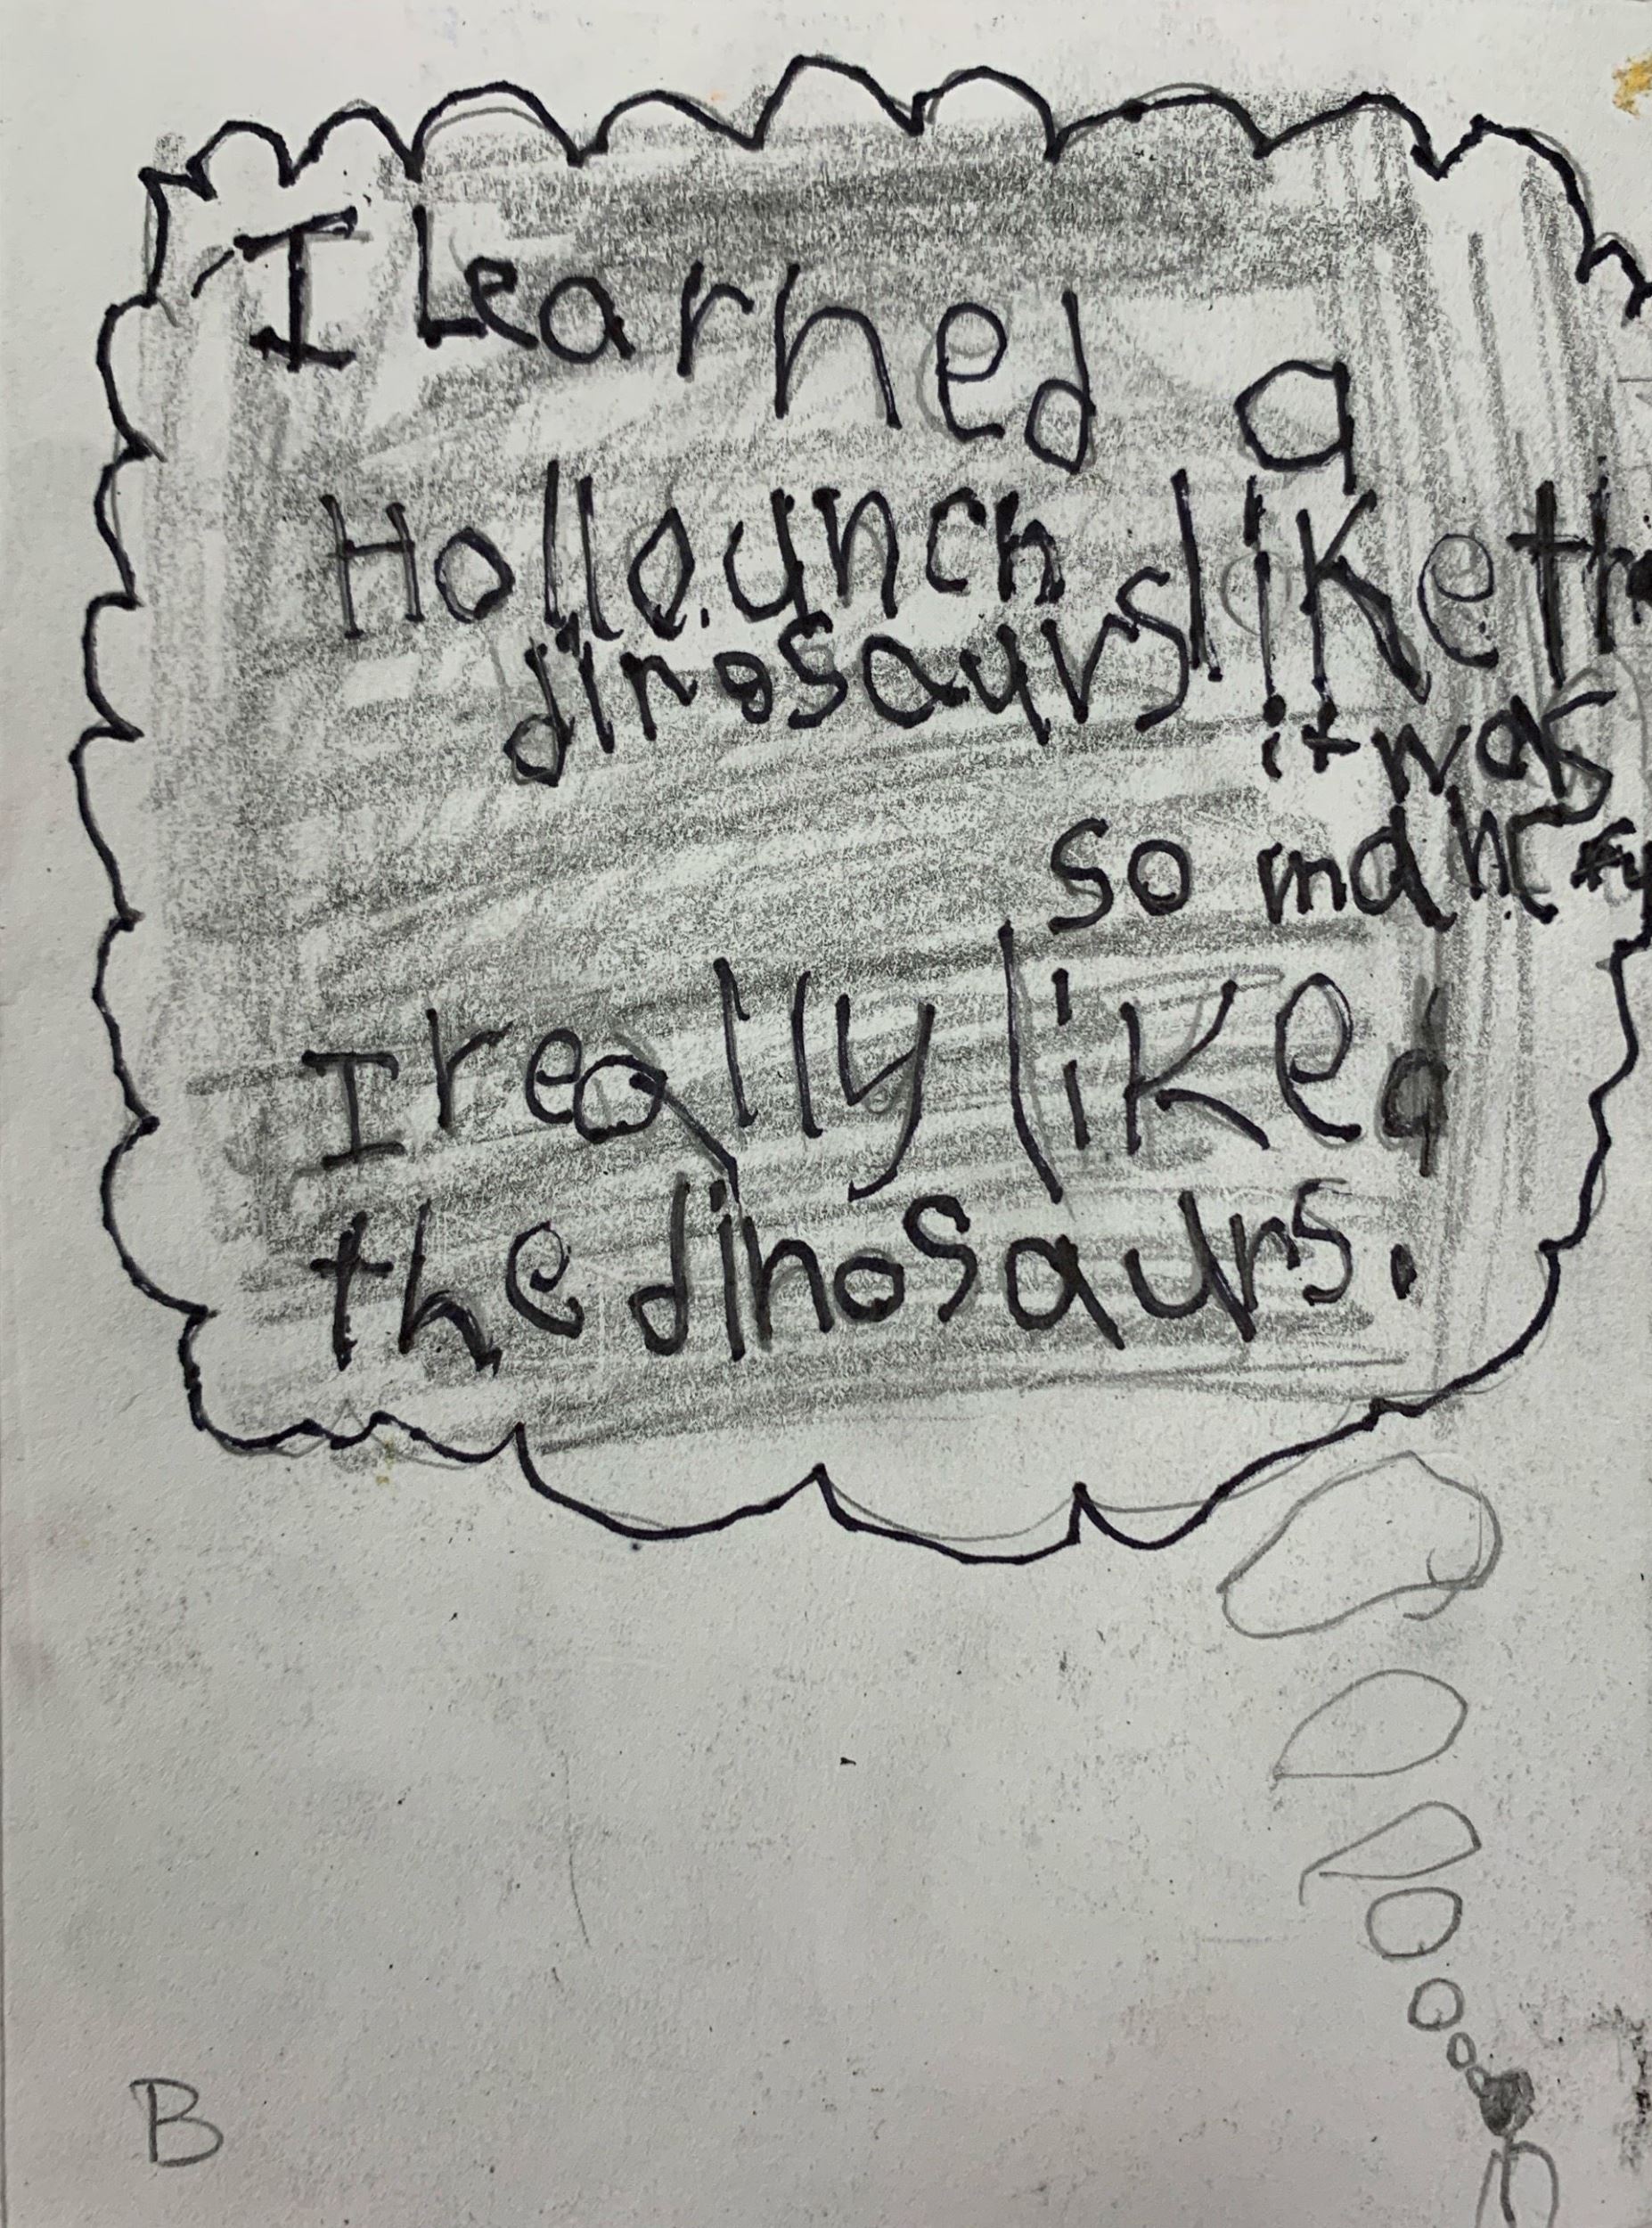 I Learned a
Hollounch like the
dinosaurs
it was
so
I really liked
the dinosaurs.
B